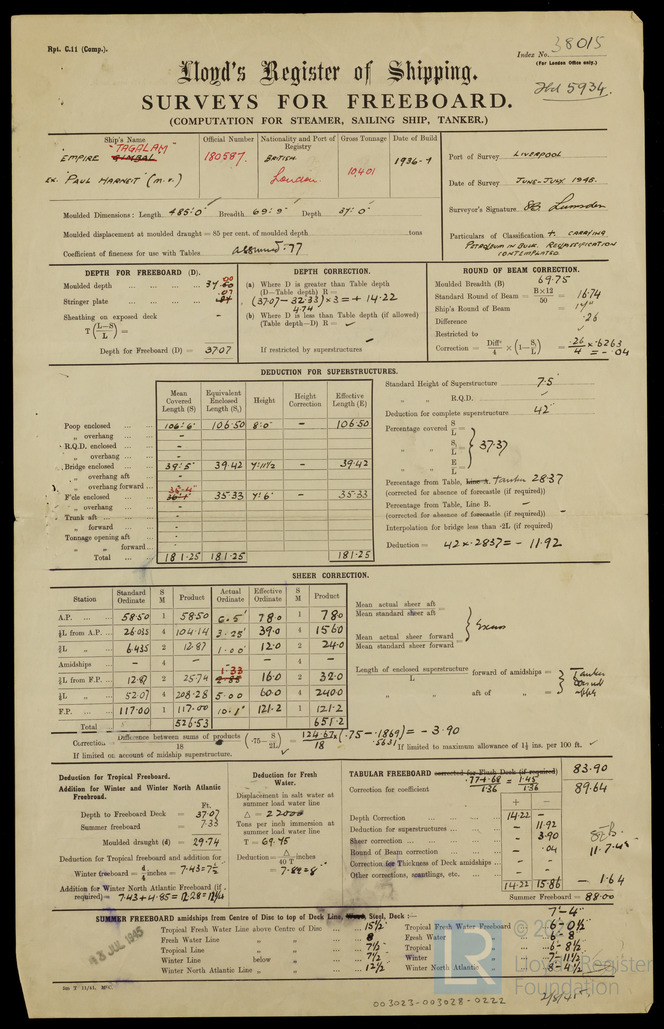 Rpt. C.11 (Comp.).
Index No. 38015
(For London Office only.)
Lloyd's Register of Shipping.
SURVEYS FOR FREEBOARD.
(COMPUTATION FOR STEAMER, SAILING SHIP, TANKER.)
5934.
Ship's Name
"TAGALAM"
EMPIRE
ex "PAUL HARNEIT" (M.V.)
Official Number
180587.
Nationality and Port of Registry
BRITISH.
London
Gross Tonnage
10,401
Date of Build
1936-7
Port of Survey LIVERPOOL
Date of Survey JUNE-JULY 1945.
Surveyor's Signature Lumsden
Particulars of Classification + CARRYING
PETROLEUM IN BULK. RECLASSIFICATION
CONTEMPLATED.
Moulded Dimensions: Length 485'0" Breadth 69'9" Depth 37'0"
Moulded displacement at moulded draught = 85 per cent. of moulded depth tons
Coefficient of fineness for use with Tables assumed .77
DEPTH FOR FREEBOARD (D).
Moulded depth 37.00
Stringer plate .07
Sheathing on exposed deck -
T (L-S/L) =
Depth for Freeboard (D) = 37.07
DEPTH CORRECTION.
(a) Where D is greater than Table depth
(D—Table depth) R =
(37.07 - 32.33) × 3 = + 14.22
4.74
(b) Where D is less than Table depth (if allowed)
(Table depth—D) R =
If restricted by superstructures
ROUND OF BEAM CORRECTION.
Moulded Breadth (B) 69.75
Standard Round of Beam = B×12/50 = 16.74
Ship's Round of Beam = 17"
Difference .26
Restricted to
Correction = Diff/4 × (1 - S₁/L) = .26/4 × .6263
= - .04
DEDUCTION FOR SUPERSTRUCTURES.
Mean Covered Length (S) Equivalent Enclosed Length (S₁) Height Height Correction Effective Length (E)
Poop enclosed 106'6" 106.50 8'0" - 106.50
" overhang -
R.Q.D. enclosed -
" overhang -
Bridge enclosed 39'5" 39.42 7'11½" - 39.42
" overhang aft -
" overhang forward -
F'cle enclosed 35'4" 35.33 7'6" - 35.33
" overhang -
Trunk aft -
" forward -
Tonnage opening aft -
" " forward -
Total 181.25 181.25 181.25
Standard Height of Superstructure 7.5
" " R.Q.D.
Deduction for complete superstructure 42"
Percentage covered S/L =
" " S₁/L = 37.37
" " E/L =
Percentage from Table, Line A. Tanker 28.37
(corrected for absence of forecastle (if required))
Percentage from Table, Line B. -
(corrected for absence of forecastle (if required)) -
Interpolation for bridge less than ·2L (if required)
Deduction = 42 × .2837 = - 11.92
SHEER CORRECTION.
Station Standard Ordinate S M Product Actual Ordinate Effective Ordinate S M Product
A.P. 58.50 1 58.50 6.5' 78.0 1 78.0
⅙L from A.P. 26.035 4 104.14 3.25' 39.0 4 156.0
⅓L " 6.435 2 12.87 1.00' 12.0 2 24.0
Amidships - 4 - - - 4 -
⅓L from F.P. 12.87 2 25.74 1.33 16.0 2 32.0
⅙L " 52.07 4 208.28 5.00 60.0 4 240.0
F.P. 117.00 1 117.00 10.1' 121.2 1 121.2
Total 526.53 651.2
Mean actual sheer aft =
Mean standard sheer aft
Mean actual sheer forward =
Mean standard sheer forward
Excess
Length of enclosed superstructure/L forward of amidships =
" " aft of " =
Tanker
apply
Correction = Difference between sums of products/18 (·75 - S/2L) = 124.67/18 × (.75 - .1869) = - 3.90
.5631
If limited on account of midship superstructure.
If limited to maximum allowance of 1½ ins. per 100 ft.
Deduction for Tropical Freeboard.
Addition for Winter and Winter North Atlantic Freeboard.
Ft.
Depth to Freeboard Deck = 37.07
Summer freeboard = 7.33
Moulded draught (d) = 29.74
Deduction for Tropical freeboard and addition for
Winter freeboard = d/4 inches = 7.43 = 7½"
Addition for Winter North Atlantic Freeboard (if required) = 7.43 + 4.85 = 12.28 = 12¼"
Deduction for Fresh Water.
Displacement in salt water at summer load water line
Δ = 22000
Tons per inch immersion at summer load water line
T = 69.75
Deduction = Δ/40 T inches
= 7.88 = 8"
TABULAR FREEBOARD corrected for Flush Deck (if required) 83.90
Correction for coefficient .77+.68/1.36 = 1.45/1.36 89.64
+ -
Depth Correction 14.22 -
Deduction for superstructures - 11.92
Sheer correction - 3.90
Round of Beam correction - .04
Correction for Thickness of Deck amidships - -
Other corrections, scantlings, etc. - -
14.22 15.86 - 1.64
Summer Freeboard = 88.00
11.7.45
SUMMER FREEBOARD amidships from Centre of Disc to top of Deck Line, Wood, Steel, Deck:— 7'-4"
Tropical Fresh Water Line above Centre of Disc 15½"
Fresh Water Line " " 8
Tropical Line " " 7½"
Winter Line below " 7½"
Winter North Atlantic Line " " 12½"
Tropical Fresh Water Freeboard 6'-0½"
Fresh Water " 6'-8"
Tropical " 6'-8½"
Winter " 7'-11½"
Winter North Atlantic " 8'-4½"
JUL 1945
LR
Lloyd's Register
Foundation
003023-003028-0222
2/8/45